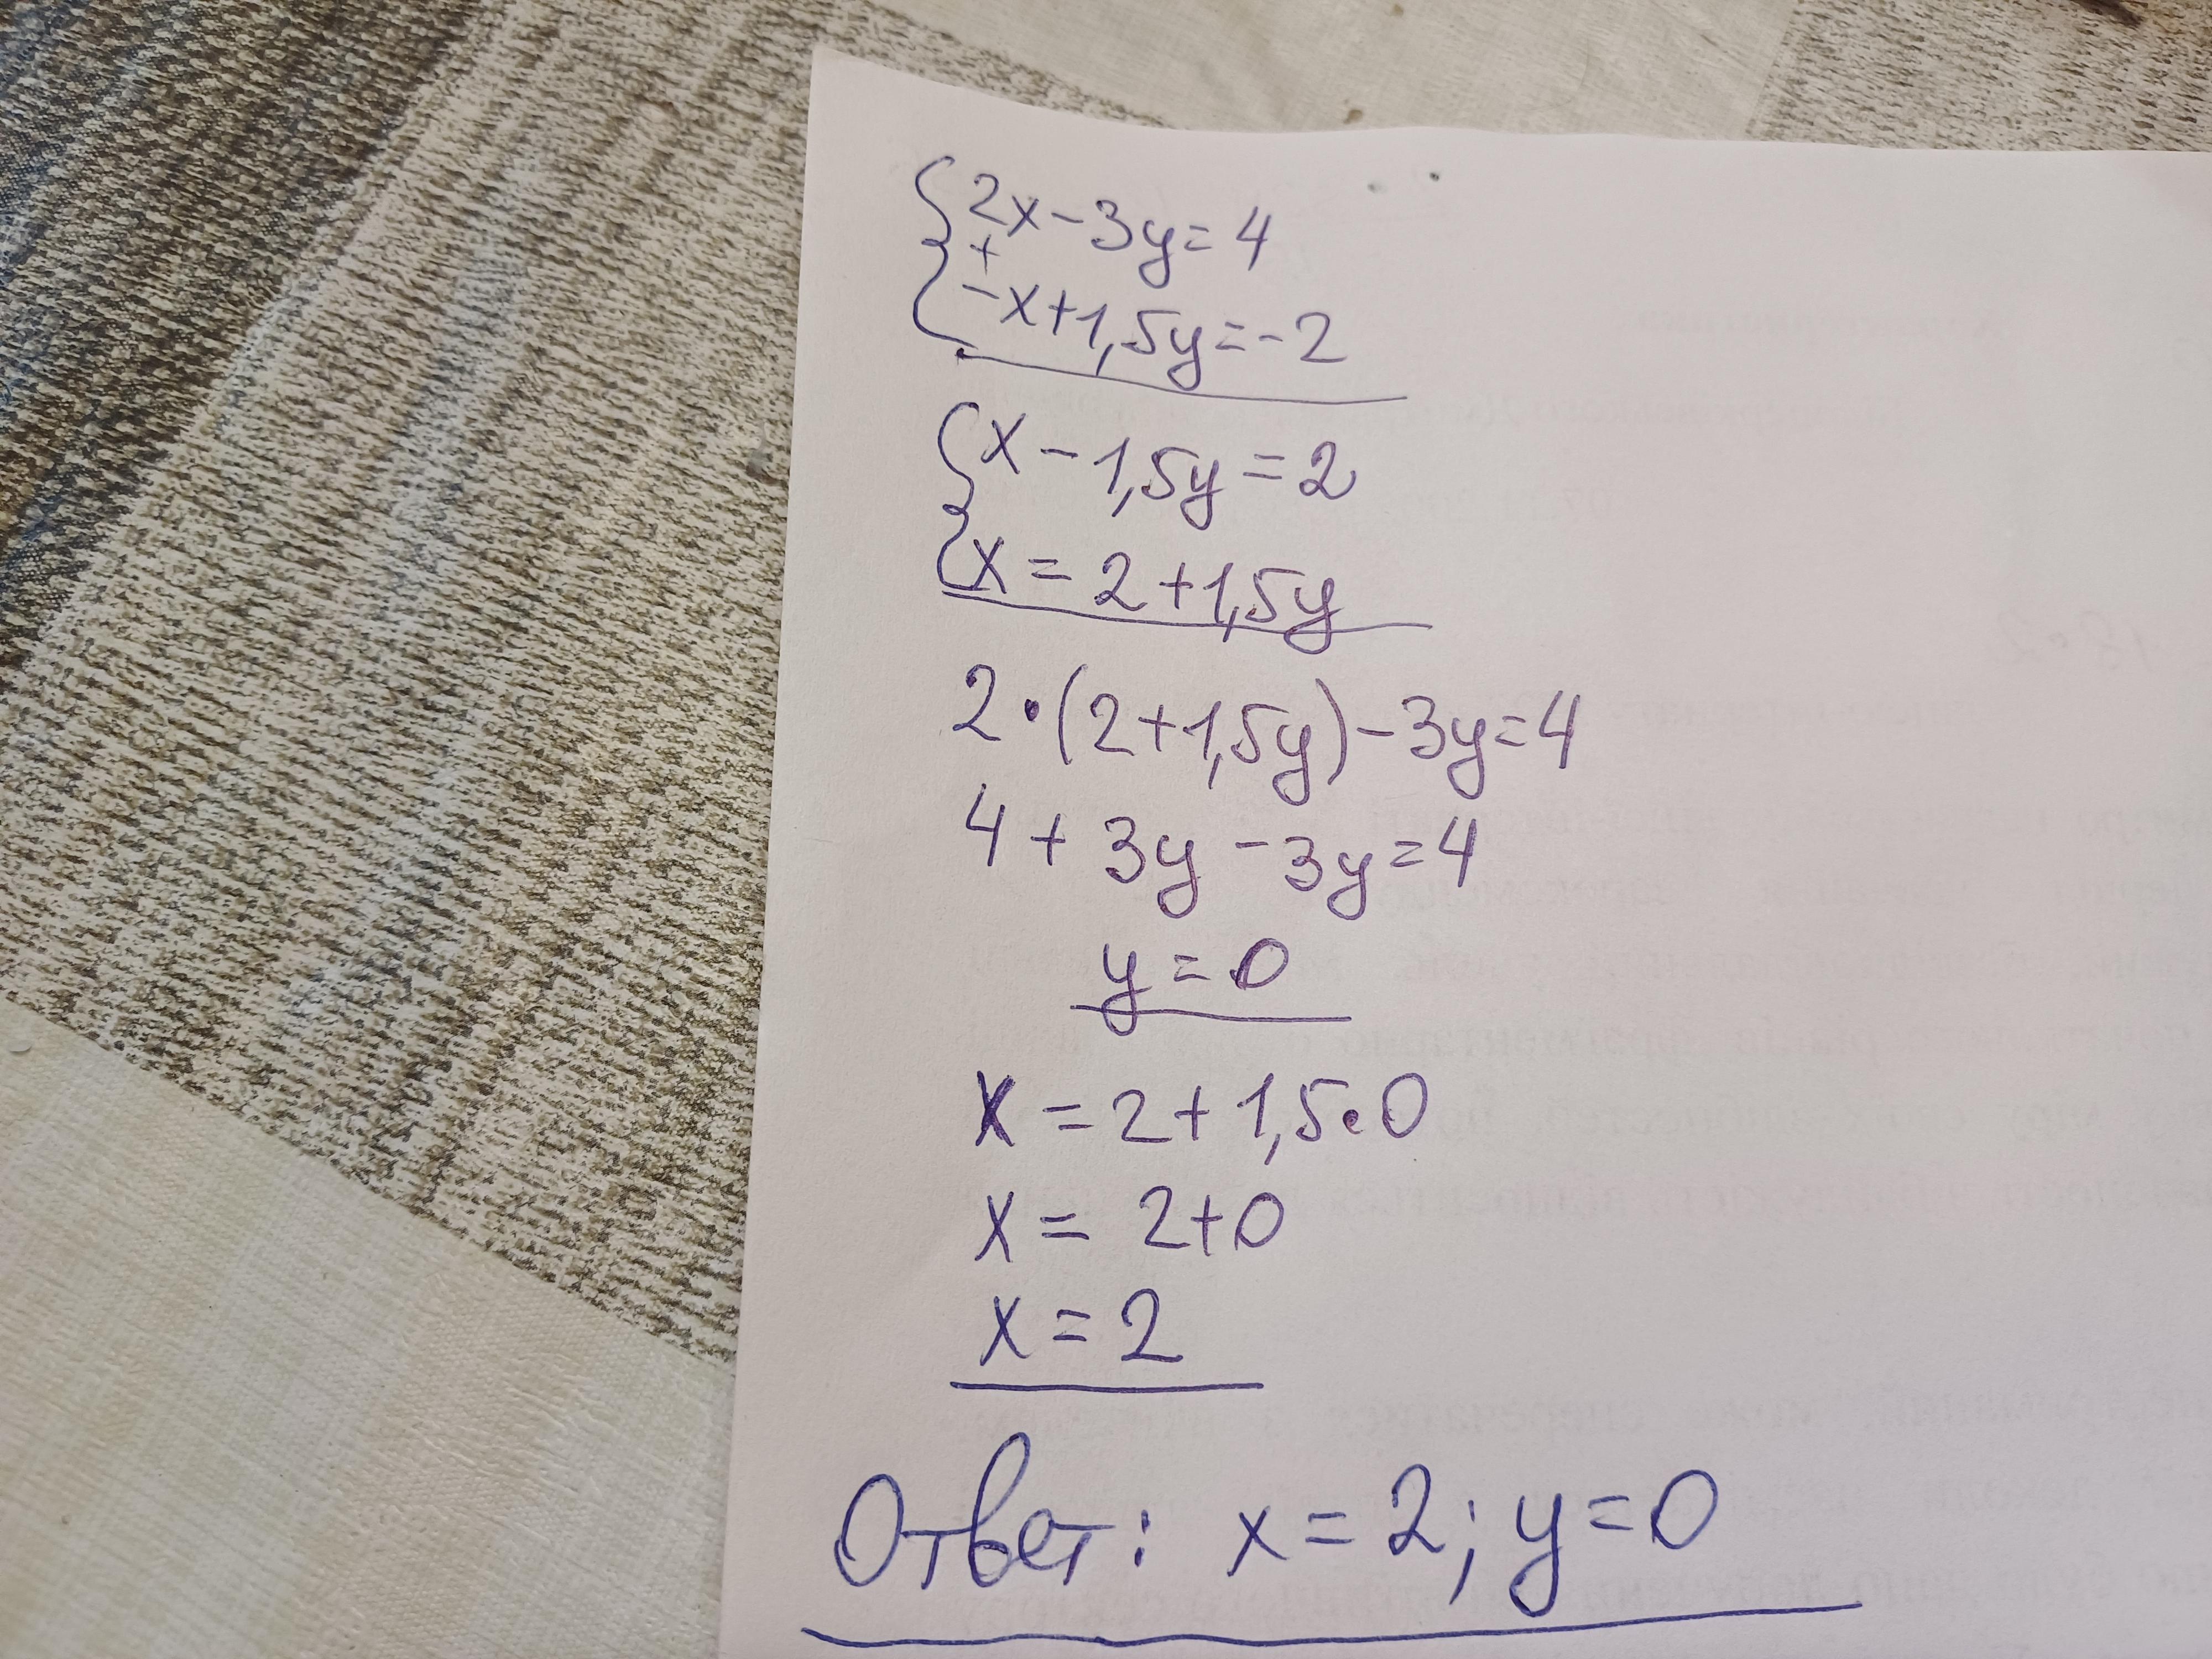 2x-3y=4
+
-x+1,5y=-2
x-1,5y=2
x=2+1,5y
2•(2+1,5y)-3y=4
4+3y-3y=4
y=0
x=2+1,5•0
x=2+0
x=2
Ответ: x=2; y=0